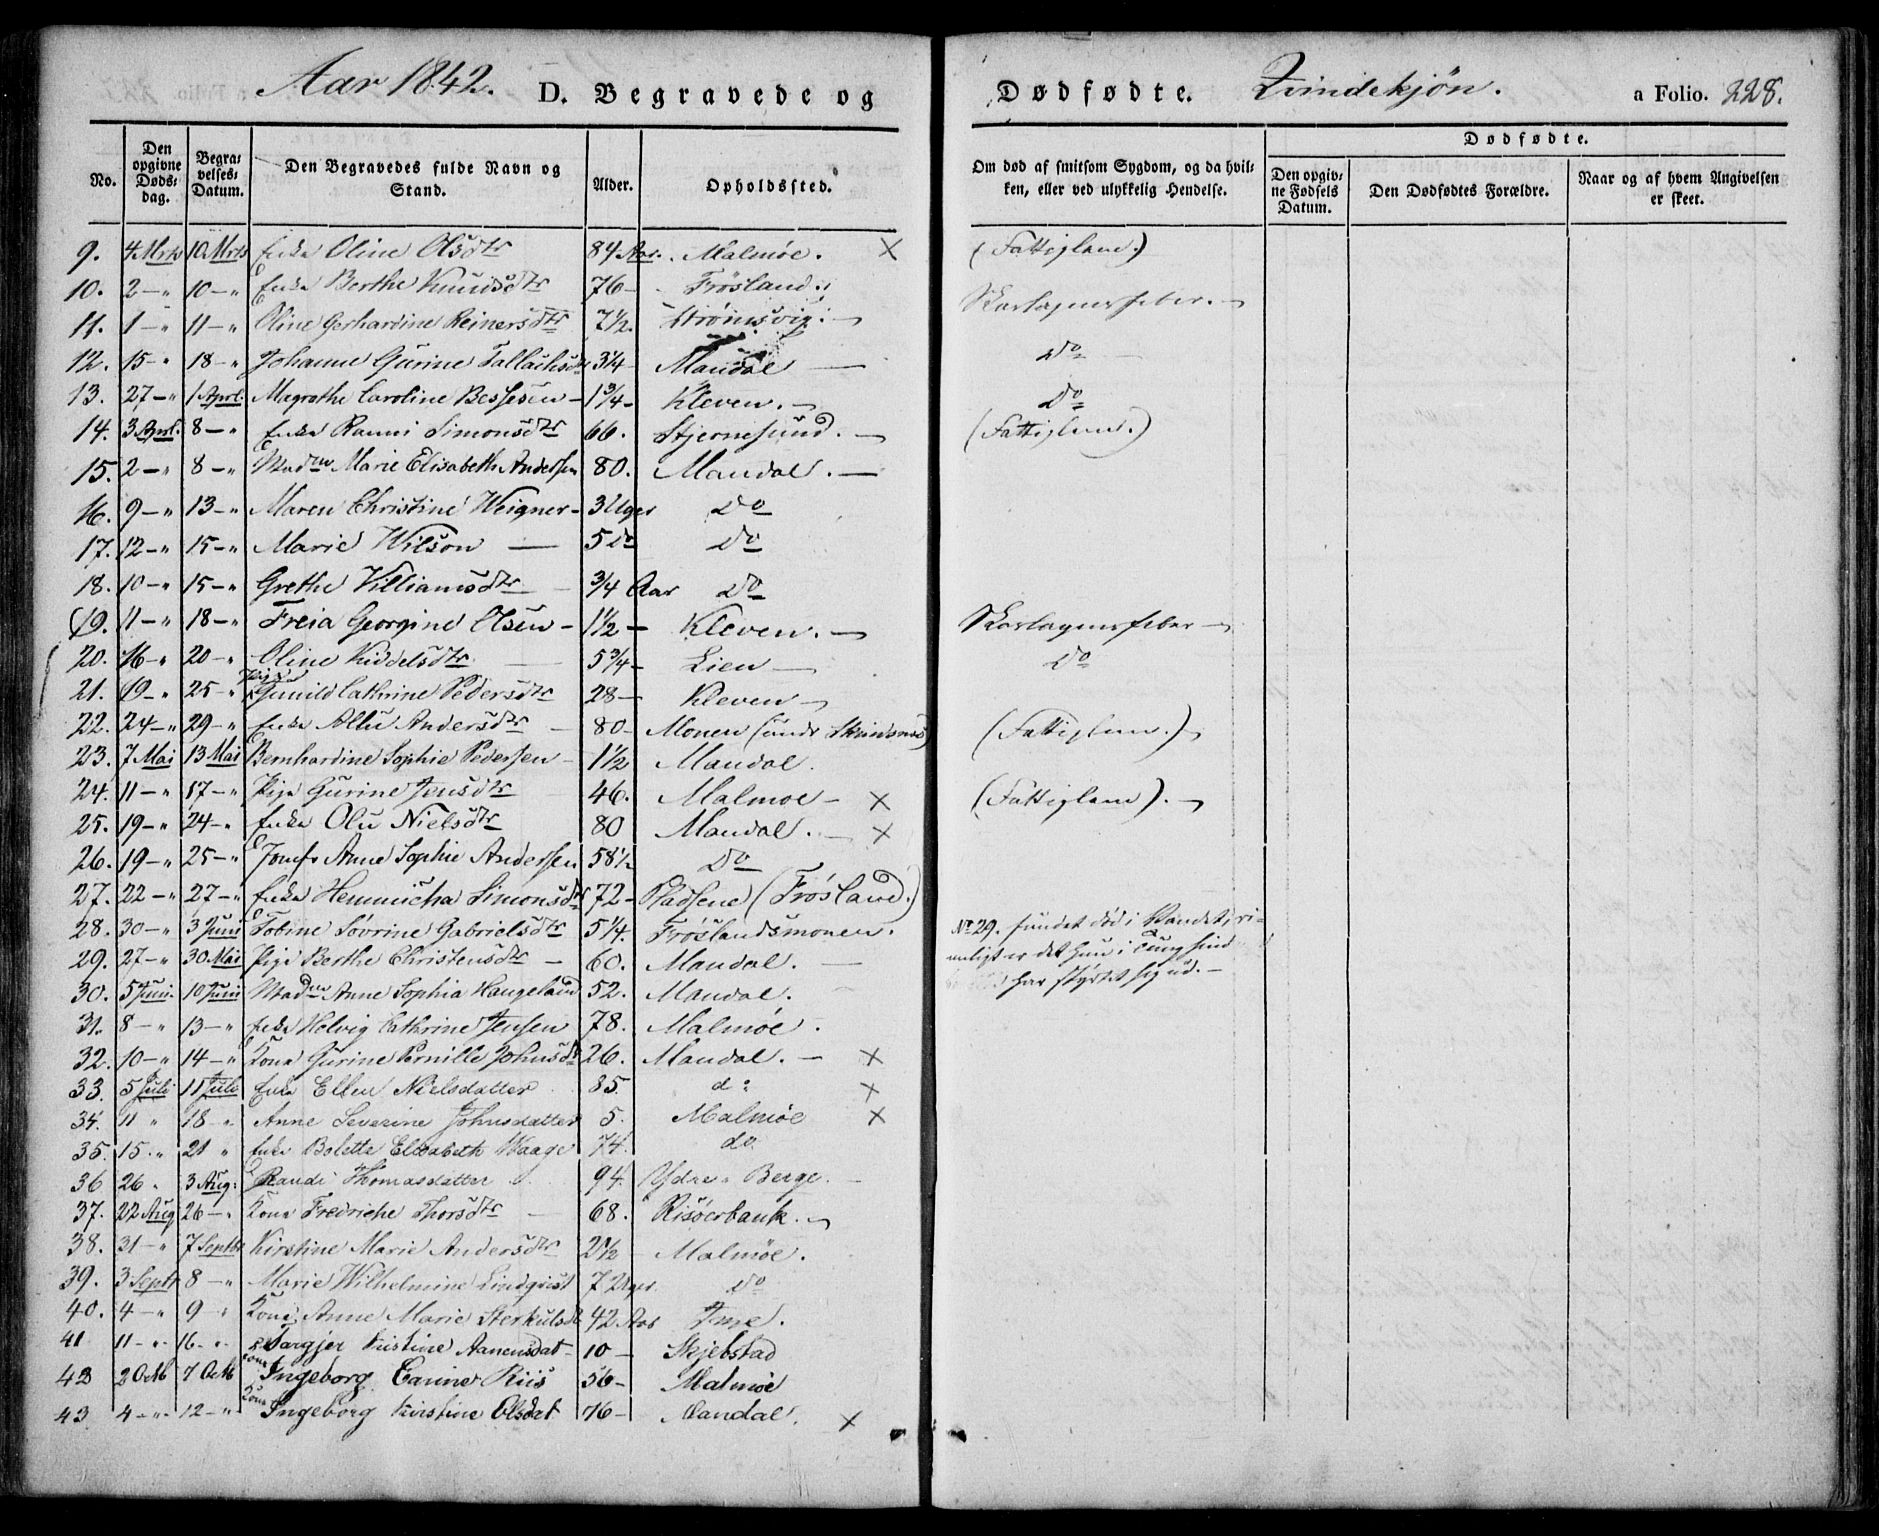 Aar 1842. D. Begravede og Dødfødte. Qvindekjøn. a Folio. 228.
No.
Den opgivne Døds-dag.
Begra-velses-Datum.
Den Begravedes fulde Navn og Stand.
Alder.
Opholdssted.
Om død af smitsom Sygdom, og da hvil-ken, eller ved ulykkelig Hendelse.
Dødfødte.
Den opgiv-ne Fødsels Datum.
Den Dødfødtes Forældre.
Naar og af hvem Angivelsen er skeet.
9. 4 Mrts 10 Mrts Enke Oline Olsdtr 84 Aar. Malmøe. × (Fattiglem.)
10. 2 – " 10 – " Enke Berthe Knudsdtr 76 – Frøsland.
11. 1 – " 11 – " Oline Gerhardine Reinersdtr 7½. Strømsvig. – Skarlagensfeber. –
12. 15 – " 18 – " Johanne Gurine Tallachsdtr 3¼ – Mandal – Do –
13. 27 – " 1 April. Magrethe Caroline Bessesen – 1¾ – Kleven. – Do
14. 3 Apri. 8 – " Enke Ranni Simonsdtr 66. Stjernesund. – (Fattiglem.)
15. 2 – " 8 – " Madme Marie Elisabeth Andersen 80. Mandal. –
16. 9 – " 13 – " Maren Christine Weigner – 3 Uger Do
17. 12 – " 15 – " Marie Wilson – 5 Do Do
18. 10 – " 15 – " Grethe Villiamsdtr – ¾ Aar Do
19. 11 – " 18 – " Freia Georgine Olsen – 1½ – Kleven. – Skarlagensfeber –
20. 16 – " 20 – " Oline Kiddelsdtr – 5¾ – Lien – Do
21. 19 – " 25 – " Pige Gunild Cathrine Pedersdtr 28 – Kleven –
22. 24 – " 29 – " Enke Allu Andersdtr – 80 – Monen (under Skrindsnes) (Fattiglem.) –
23. 7 Mai 13 Mai Bernhardine Sophie Pedersen – 1½ Mandal.
24. 11 – " 17 – " Pige Gurine Jensdtr 46. Malmøe – × (Fattiglem). –
25. 19 – " 24 – " Enke Olu Nielsdtr 80 Mandal. – ×
26. 19 – " 25 – " Jomfr Anne Sophie Andersen 58½ Do
27. 22 – " 27 – " Enke Hemmicha Simonsdtr 72 – Pladsene (Frøsland.)
28. 30 – " 3 Juni Tobine Sovrine Gabrielsdtr 5¼. Frøslandsmonen.
29. 27 – " 30 Mai Pige Berthe Christensdtr – 60. Mandal. – No 29. funden død i Vandet, ri-
meligt er det hun i Tungsind
har styrtet sig ud. –
30. 5 Juni. 10 Juni Madme Anne Sophia Haugeland 52. Mandal.
31. 8 – " 13 – " Enke Helvig Cathrine Jensen 78. Malmøe.
32. 10 – " 14 – " Kone Gurine Pernille Johnsdtr 26. Mandal. – ×
33. 5 Juli 11 Juli Enke Ellen Nielsdatter 85. do ×
34. 11 " 18 – " Anne Severine Johnsdatter 5. Malmøe ×
35. 15. " 21 " Enke Bolette Elisabeth Waage 74. do.
36 26 " 3 Aug: Randi Thomasdatter 94. Ydre Berge. –
37. 22 Aug 26 – " Kone Fredriche Thorsdtr – 68. Risøerbank. –
38. 31 – " 7 Septbr Kirstine Marie Andersdtr 2½ Malmøe.
39. 3 Septr 8 – " Marie Wilhelmine Lindqvist 7 Uger Do
40. 4 – " 9 " Kone Anne Marie Sterkulsd 42 Aar Ime.
41 11 – " 16 – " Targjer Kirstine Aanensdat – 10 – Skjebstad
42 2 Octb 7 Octb Kone Ingeborg Canine Riis 56 – Malmøe
43 4 – " 12 – " Kone Ingeborg Kirstine Olsdat 76 – Mandal. ×